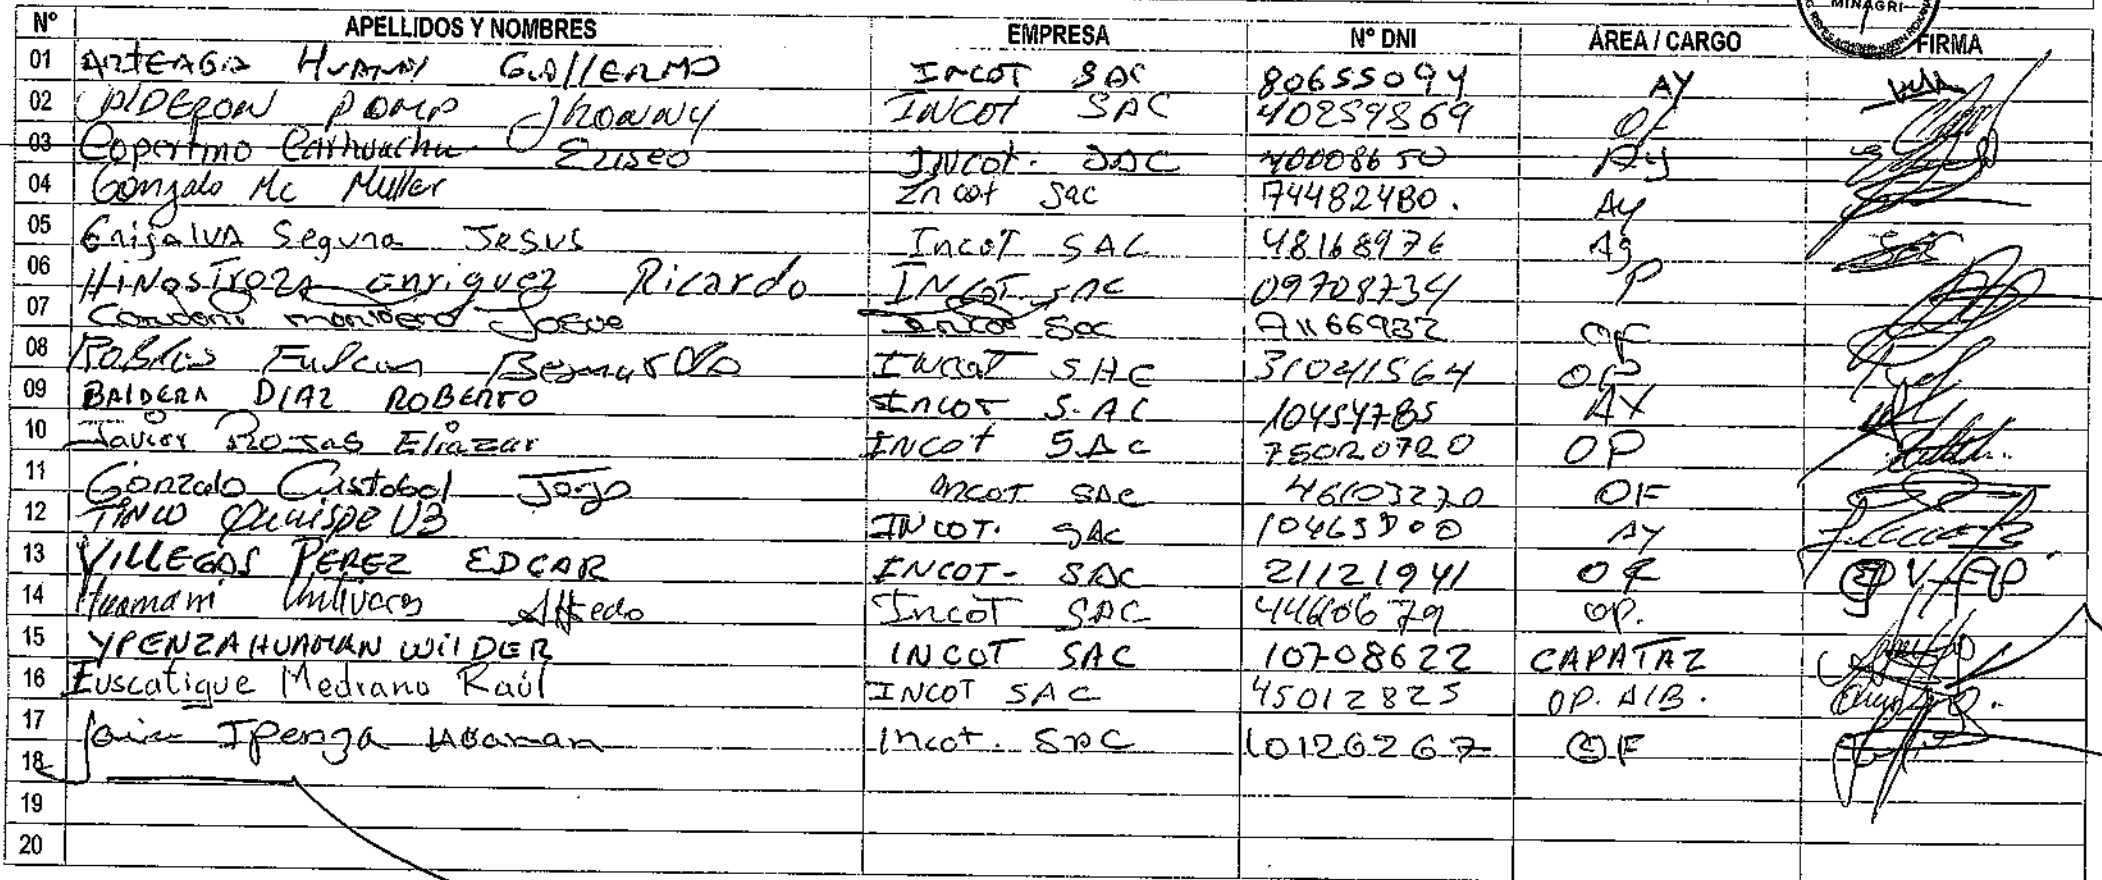 MINAGRI
Nº APELLIDOS Y NOMBRES EMPRESA Nº DNI ÁREA / CARGO FIRMA
01 ARTEAGA HUAMAN GUILLERMO INCOT SAC 80655094 AY
02 CALDERON POMA JHONNY INCOT SAC 40259869 OF
03 Copertino Carhuachu Eliseo INCOT. SAC 40008650 Ay
04 Gonzalo Mc Muller Incot Sac 74482480. Ay
05 GrijalVA Segura JESUS IncoT SAC 48168976 Ag
06 HINOSTROZA enriquez Ricardo INCOT SAC 09708734 P
07 Condori Josue Incot Sac OF
08 Robles INCOT SAC OP
09 BALDERA DIAZ ROBERTO INCOT S.AC 10454785 AY
10 Javier ROJAS Eliazar INCOT SAC 75020720 OP
11 Gonzalo Cristobal Jorge INCOT SAC 46103270 OF
12 TINCO Quispe INCOT. SAC AY
13 VILLEGAS PEREZ EDGAR INCOT- SAC 21121941 OF
14 Huamani Untiveros Alfredo INCOT SAC 4460679 OP.
15 YPENZA HUAMAN WILDER INCOT SAC 10708622 CAPATAZ
16 Euscatigue Medrano Raúl INCOT SAC 45012825 OP. A/B.
17 Ipenza Huaman Incot. SAC 10126267 OF
18
19
20